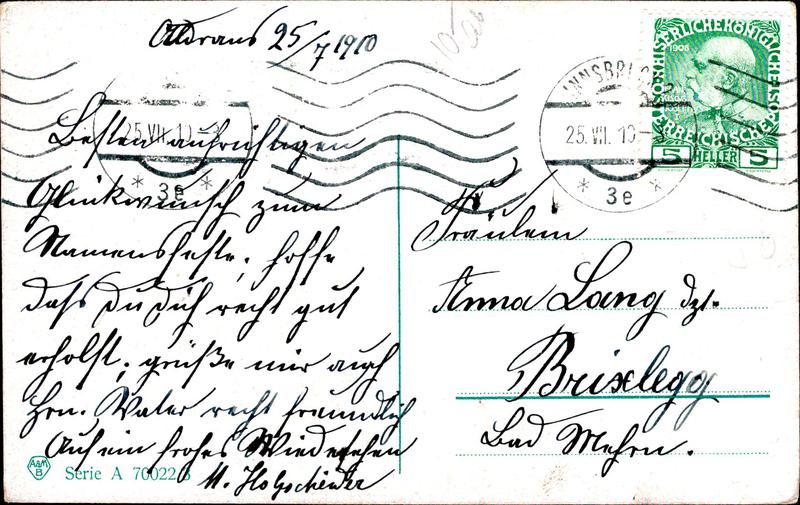 Aldrans 25/7 1910
Besten aufrichtigen
Glükwunsch zum
Namensfeste, hoffe
dass Du Dich recht gut
erholst, grüße mir auch
Hrn. Vater recht freundlich
Auf ein frohes Wiedersehen
M. Holzscheider
Serie A 70022/3
A&M
B
K.K. ÖSTERREICHISCHE
1908
5 HELLER 5
INNSBRUCK
25.VII.10
* 3e *
25.VII.10
* 3e *
Fräulein
Anna Lang dzt.
Brixlegg
Bad Mehrn.